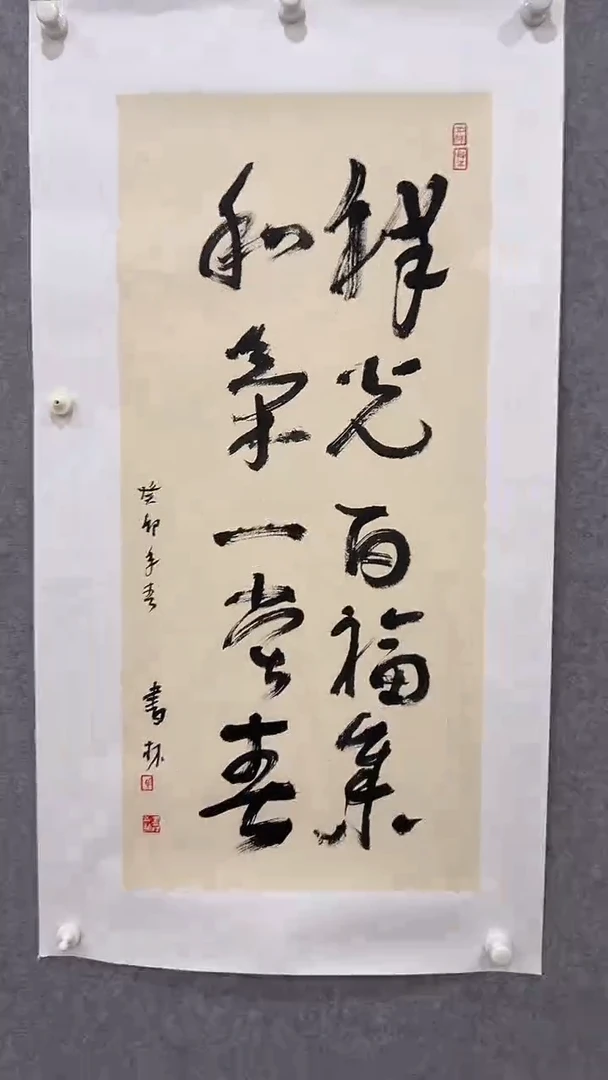 祥光百福集
和氣一堂春
癸卯年春
書林